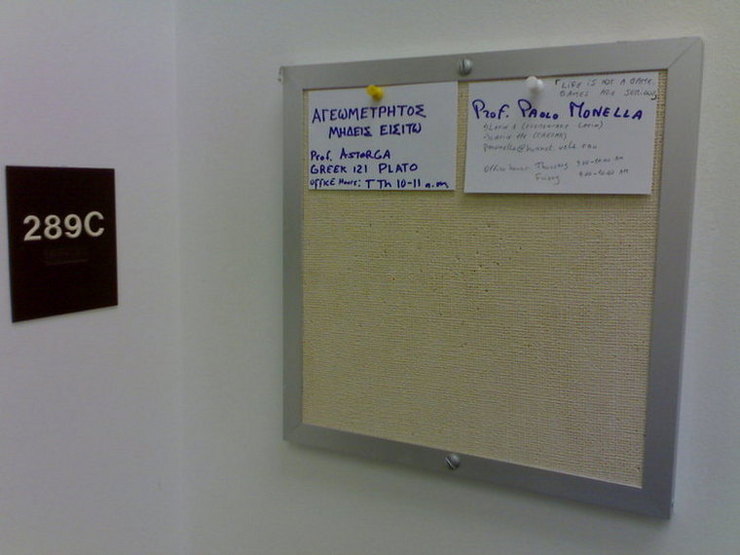 289C
ΑΓΕΩΜΕΤΡΗΤΟΣ
ΜΗΔΕΙΣ ΕΙΣΙΤΩ
Prof. ASTORGA
GREEK 121 PLATO
OFFICE HOURS: T Th 10-11 a.m
"LIFE IS NOT A GAME.
GAMES ARE SERIOUS"
PROF. PAOLO MONELLA
Office hours: Thursday
Friday